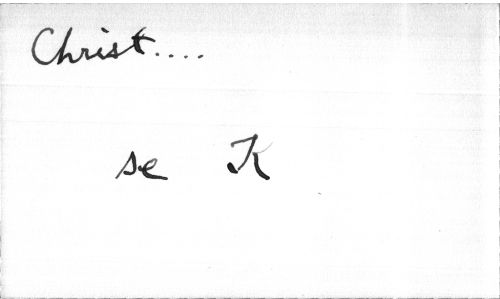 Christ....
se K